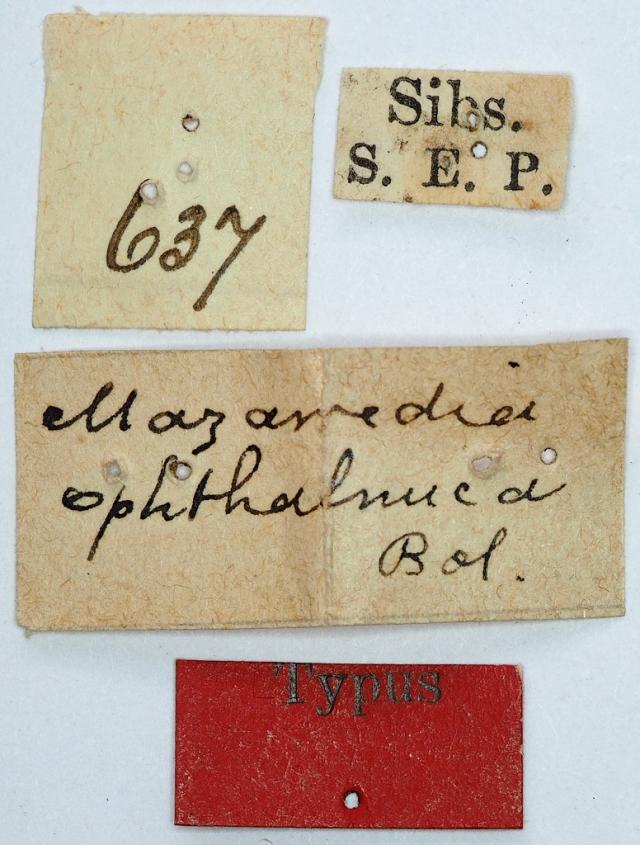 637
Sibs.
S. E. P.
Mazaredia
ophthalmica
Bol.
Typus